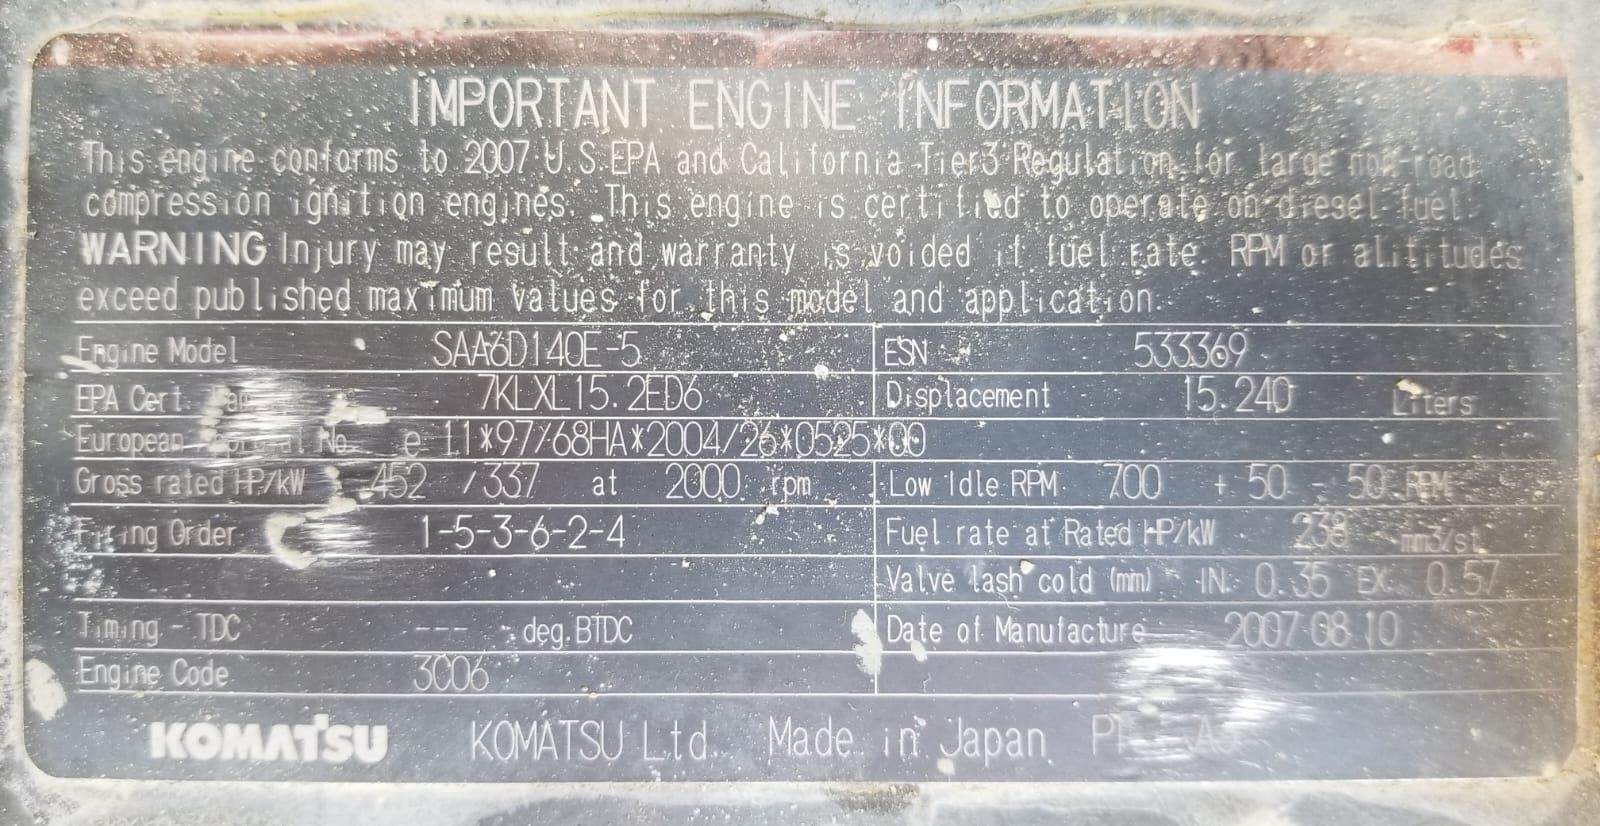 IMPORTANT ENGINE INFORMATION
This engine conforms to 2007 U.S.EPA and California Tier3 Regulation for large non-road
compression ignition engines. This engine is certified to operate on diesel fuel.
WARNING Injury may result and warranty is voided if fuel rate. RPM or alititudes
exceed published maximum values for this model and application.
Engine Model SAA6D140E-5 ESN 533369
EPA Cert. 7KLXL15.2ED6 Displacement 15.240 Liters
European No. e 11*97/68HA*2004/26*0525*00
Gross rated HP/kW 452 /337 at 2000 rpm Low Idle RPM 700 + 50 - 50 RPM
Firing Order 1-5-3-6-2-4 Fuel rate at Rated HP/kW 238 mm3/st
Valve lash cold (mm) IN. 0.35 EX. 0.57
Timing - TDC --- deg.BTDC Date of Manufacture 2007 08 10
Engine Code 3C06
KOMATSU KOMATSU Ltd. Made in Japan